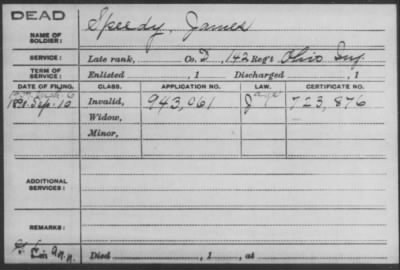 DEAD
NAME OF SOLDIER: Speedy, James
SERVICE: Late rank, Co. D, 142 Reg't Ohio Inf.
TERM OF SERVICE: Enlisted , 1 Discharged , 1
DATE OF FILING. CLASS. APPLICATION NO. LAW. CERTIFICATE NO.
1891 Sep. 10 Invalid, 943,061 J 723,876
Widow,
Minor,
ADDITIONAL SERVICES:
REMARKS:
Died , 1 , at